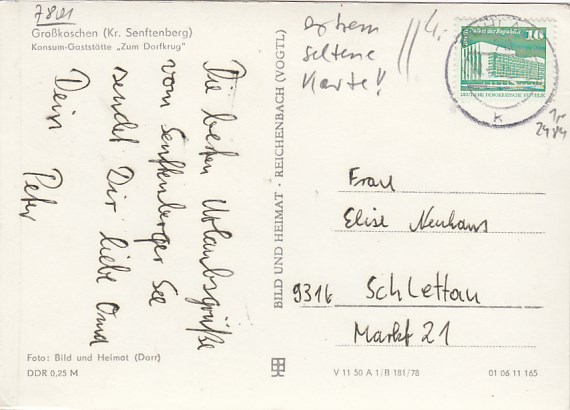 7801
Großkoschen (Kr. Senftenberg)
Konsum-Gaststätte „Zum Dorfkrug"
Die besten Urlaubsgrüße
vom Senftenberger See
sendet Dir liebe Oma
Dein Peter
Foto: Bild und Heimat (Darr)
DDR 0,25 M
BILD UND HEIMAT · REICHENBACH (VOGTL)
extrem
seltene
Karte!
4.-
Palast der Republik
10
DEUTSCHE DEMOKRATISCHE REPUBLIK
K
2484
Frau
Elise Neuhaus
9316 Schlettau
Markt 21
V 11 50 A 1/B 181/78
01 06 11 165